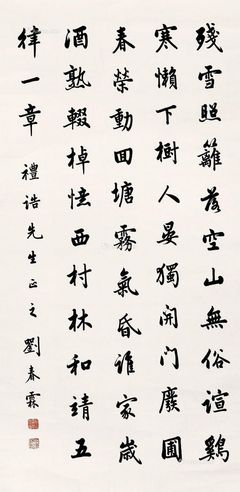 殘雪照籬落空山無俗諠鷄
寒懶下樹人晏獨開門廢圃
春榮動回塘霧氣昏誰家歲
酒熟輟棹憶西村林和靖五
律一章
禮誥先生正之
劉春霖